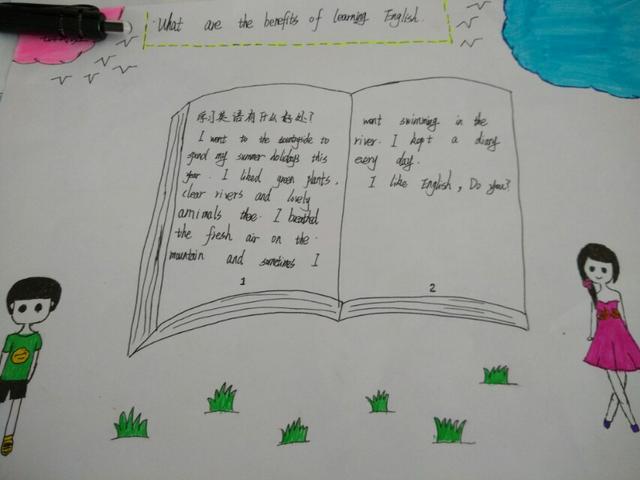 What are the benefits of learning English.
学习英语有什么好处?
I went to the countryside to
spend my summer holidays this
year. I liked green plants,
clear rivers and lovely
animals thee. I breathed
the fresh air on the
mountain and sometimes I
1
went swimming in the
river. I kept a diary
every day.
I like English, Do you?
2